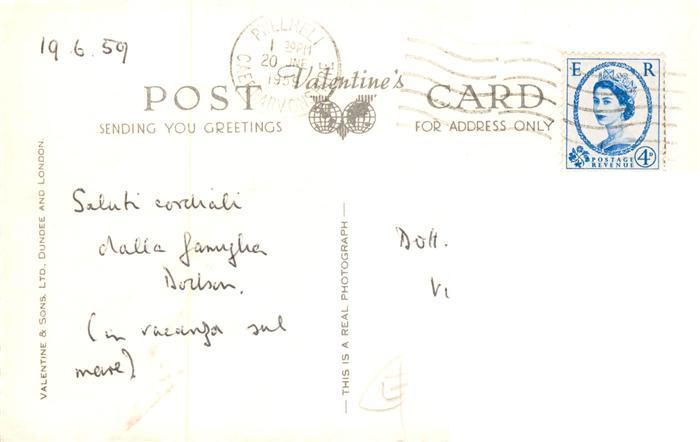 19.6.59
PWLLHELI
1 30PM
20 JNE
1959
CAERNARVONSHIRE
Valentine's
POST CARD
SENDING YOU GREETINGS
FOR ADDRESS ONLY
E R
POSTAGE
REVENUE
4D
VALENTINE & SONS, LTD., DUNDEE AND LONDON.
Saluti cordiali
dalla famiglia
Dodson.
(in vacanza sul
mare)
— THIS IS A REAL PHOTOGRAPH —
Dott.
Vi